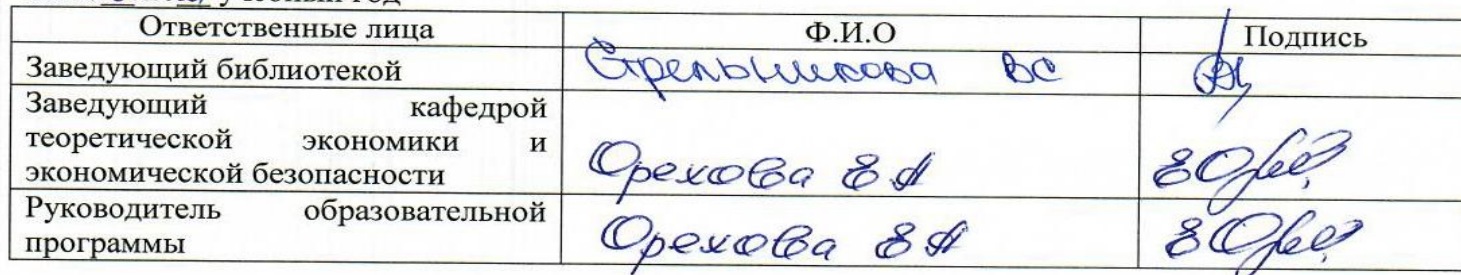 учебный год
Ответственные лица Ф.И.О Подпись
Заведующий библиотекой Стрельникова ВС
Заведующий кафедрой
теоретической экономики и
экономической безопасности Орехова Е А
Руководитель образовательной
программы Орехова Е А